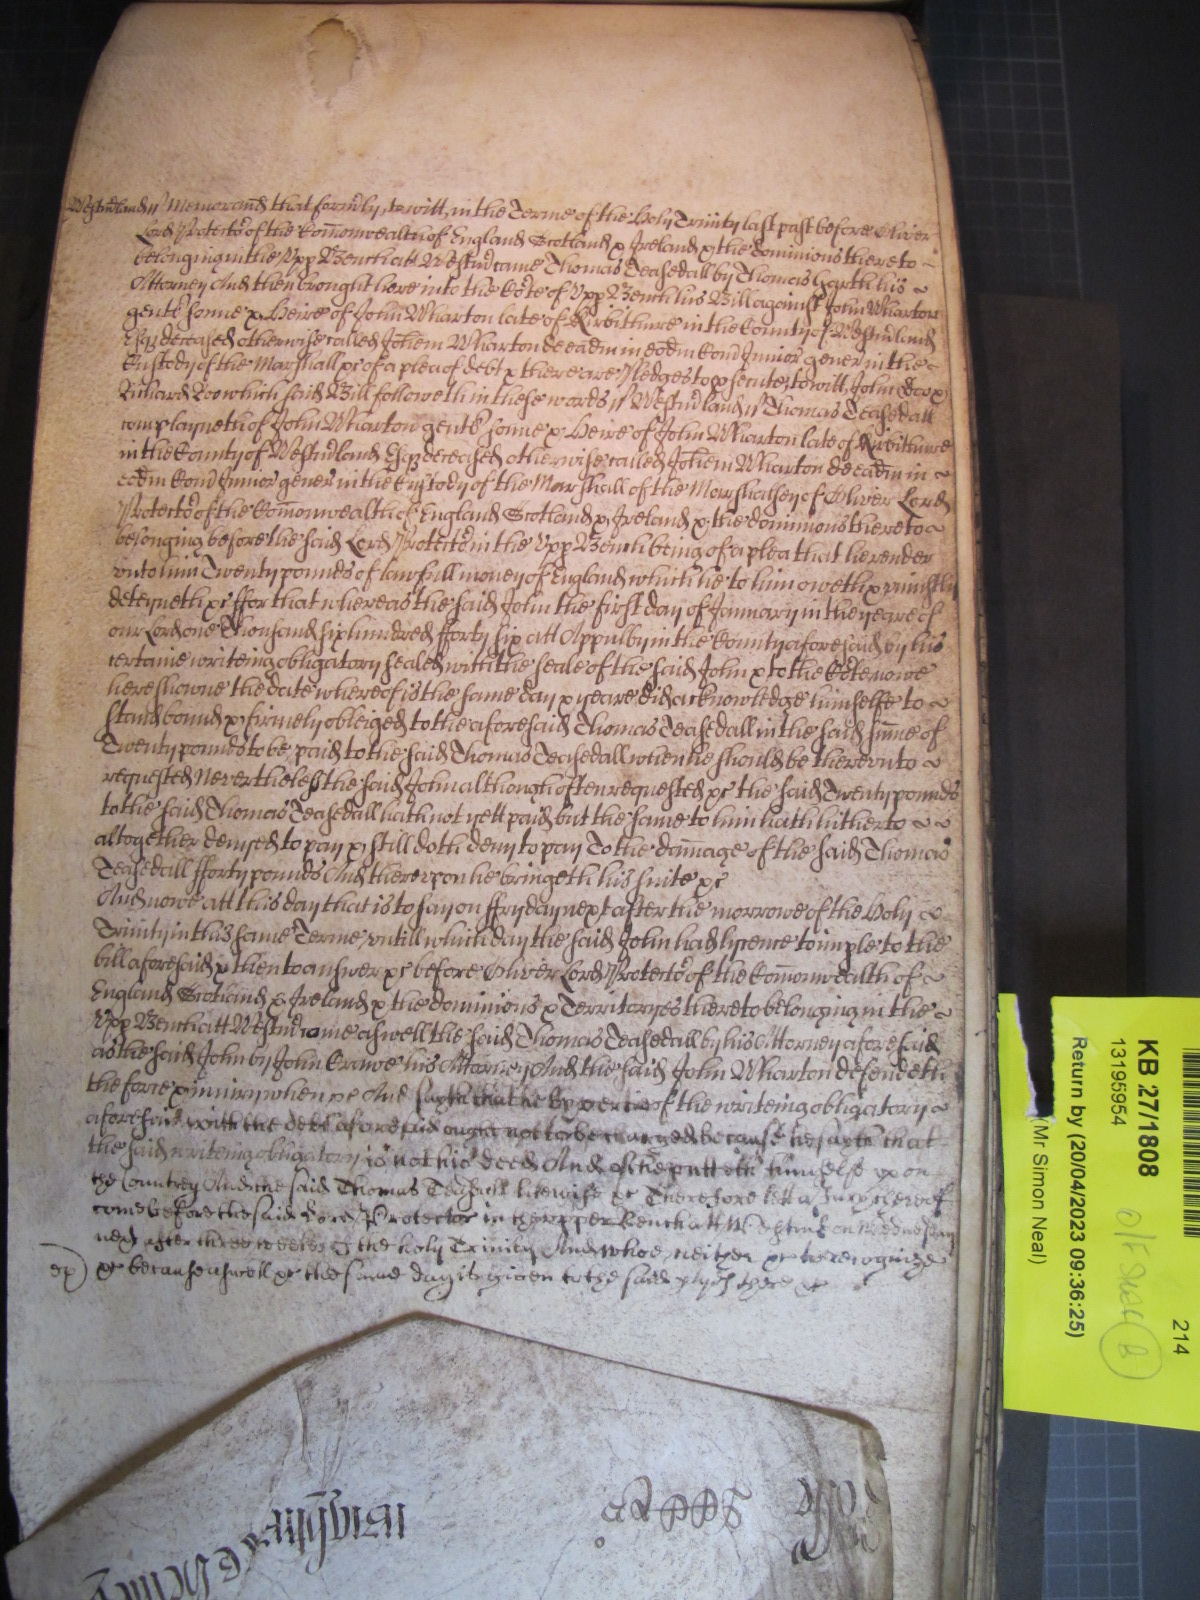 Westmerland // Memorand that formerly, to witt, in the Terme of the Holy Trinity last past before Oliver
Lord Protector of the Comonwealth of England Scotland & Ireland & the dominions thereto
belonging in the Upp Bench att Westmr came Thomas Teasedall by Thomas Garth his
Attorney And then brought here into the Cort of Upp Bench his Bill against John Wharton
gent sonne & Heire of John Wharton late of Kirbithure in the County of Westmrland
Esqr deceased otherwise called Johem Wharton de eadm in eodm Com Junior gener in the
Custody of the Marshall &c of a plea of debt & there are Pledges to psecute, to witt, John Doe &
Richard Roe which said Bill followeth in these words // Westmrland // Thomas Teasedall
complayneth of John Wharton gent sonne & Heire of John Wharton late of Kirbithure
in the County of Westmrland Esqr deceased otherwise called Johem Wharton de eadm in
eodm Com Junior gener in the Custody of the Marshall of the Marshalsey of Oliver Lord
Protector of the Comonwealth of England Scotland & Ireland & the dominions thereto
belonging before the said Lord Protector in the Upp Bench being of a plea that he render
unto him Twenty pounds of lawfull money of England which he to him oweth & uniustly
deteyneth &c ffor that whereas the said John the first day of January in the yeare of
our Lord one Thousand six hundred fforty six att Appulby in the County aforesaid by his
certaine writeing obligatory sealed with the seale of the said John & to the Cort nowe
here showne the date whereof is the same day & yeare did acknowledge himselfe to
stand bound & firmely obleiged to the aforesaid Thomas Teasedall in the said sume of
Twenty pounds to be paid to the said Thomas Teasedall when he should be thereunto
requested Neverthelesse the said John although often requested &c the said Twenty pounds
to the said Thomas Teasedall hath not yett paid but the same to him hath hitherto
altogether denyed to pay & still doth deny to pay To the damage of the said Thomas
Teasedall fforty pounds And thereupon he bringeth his suite &c
And nowe att this day that is to say on ffryday next after the morrowe of the Holy
Trinity in this same Terme, untill which day the said John had lycence to imple to the
bill aforesaid & then to answer &c before Oliver Lord Protector of the Comonwealth of
England Scotland & Ireland & the dominions & Territoryes thereto belonging in the
Upp Bench att Westmr come aswell the said Thomas Teasedall by his Attorney aforesaid
as the said John by John Crawe his Attorney And the said John Wharton defendeth
the force & iniury when &c And sayth that he by vertue of the writeing obligatory
aforesaid with the debt aforesaid ought not to be charged because he sayth that
the said writeing obligatory is not his deed And of this putteth himselfe upon
the Countrey And the said Thomas Teasdall likewise &c Therefore lett a Jury thereof
come before the said Lord Protector in the upper Bench att Westmr on Wednesday
next after three weekes of the holy Trinity And who neither &c to recognize
&c because aswell &c the same day is given to the said ptyes there &c
KB 27/1808
13195954
Return by (20/04/2023 09:36:25)
(Mr Simon Neal)
214